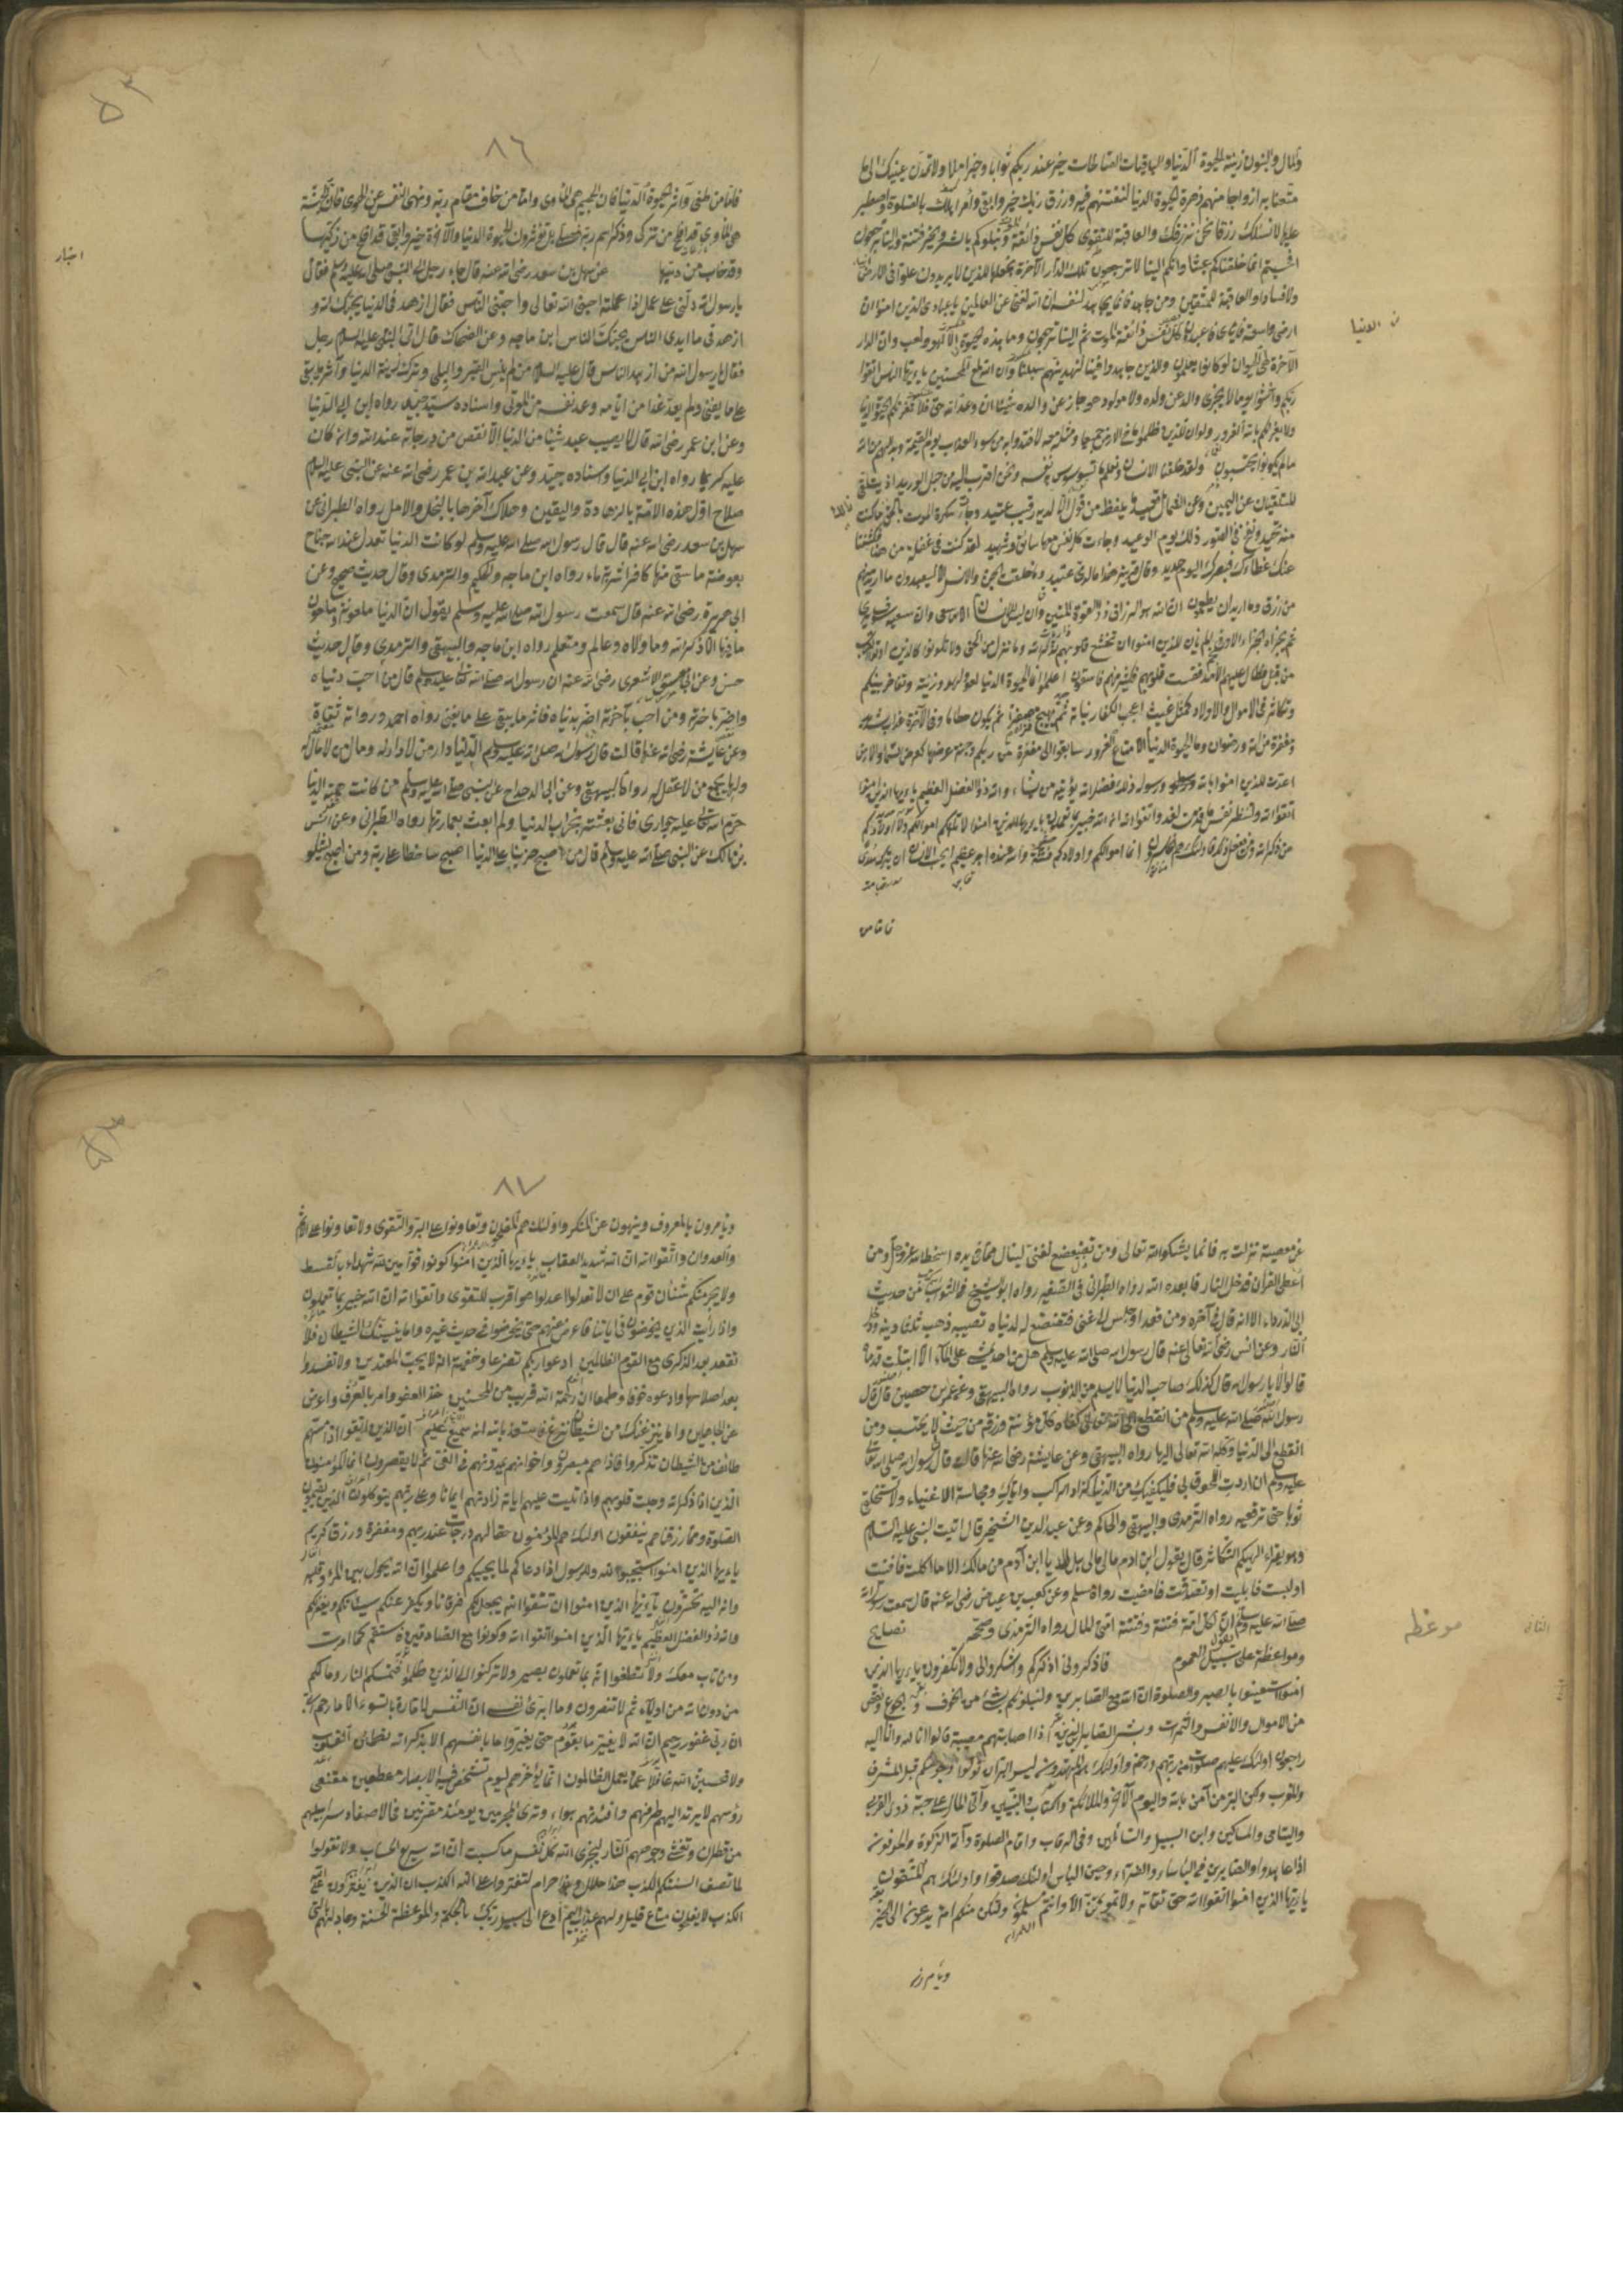 والمال والبنون زينة الحيوة الدنيا والباقيات الصالحات خير عند ربكم ثوابا وخير املا ولا تمدن عينيك الى ما
متعنا به ازواجا منهم زهرة الحيوة الدنيا لنفتنهم فيه ورزق ربك خير وابقى وأمر اهلك بالصلوة واصطبر
عليها لا نسئلك رزقا نحن نرزقك والعاقبة للتقوى كل نفس ذائقة الموت ونبلوكم بالشر والخير فتنة والينا ترجعون
افحسبتم انما خلقناكم عبثا وانكم الينا لا ترجعون تلك الدار الآخرة نجعلها للذين لا يريدون علوا فى الارض
ولا فسادا والعاقبة للمتقين ومن جاهد فانما يجاهد لنفسه ان الله لغنى عن العالمين يا عبادى الذين امنوا ان
ارضى واسعة فاياى فاعبدون كل نفس ذائقة الموت ثم الينا ترجعون وما هذه الحيوة الا لهو ولعب وان الدار
الآخرة لهى الحيوان لو كانوا يعلمون والذين جاهدوا فينا لنهدينهم سبلنا وان الله لمع المحسنين يا ايها الناس اتقوا
ربكم واخشوا يوما لا يجزى والد عن ولده ولا مولود هو جاز عن والده شيئا ان وعد الله حق فلا تغرنكم الحيوة الدنيا
ولا يغرنكم بالله الغرور ولو ان للذين ظلموا ما فى الارض جميعا ومثله معه لافتدوا به من سوء العذاب يوم القيمة وبدا لهم من الله
ما لم يكونوا يحتسبون ولقد خلقنا الانسان ونعلم ما توسوس به نفسه ونحن اقرب اليه من حبل الوريد اذ يتلقى
المتلقيان عن اليمين وعن الشمال قعيد ما يلفظ من قول الا لديه رقيب عتيد وجاءت سكرة الموت بالحق ذلك ما كنت
منه تحيد ونفخ فى الصور ذلك يوم الوعيد وجاءت كل نفس معها سائق وشهيد لقد كنت فى غفلة من هذا فكشفنا
عنك غطاءك فبصرك اليوم حديد وقال قرينه هذا ما لدى عتيد وما خلقت الجن والانس الا ليعبدون ما اريد منهم
من رزق وما اريد ان يطعمون ان الله هو الرزاق ذو القوة المتين وان ليس للانسان الا ما سعى وان سعيه سوف يرى
ثم يجزاه الجزاء الاوفى الم يأن للذين امنوا ان تخشع قلوبهم لذكر الله وما نزل من الحق ولا تكونوا كالذين اوتوا الكتب
من قبل فطال عليهم الامد فقست قلوبهم وكثير منهم فاسقون اعلموا انما الحيوة الدنيا لعب ولهو وزينة وتفاخر بينكم
وتكاثر فى الاموال والاولاد كمثل غيث اعجب الكفار نباته ثم يهيج فتريه مصفرا ثم يكون حطاما وفى الآخرة عذاب شديد
ومغفرة من الله ورضوان وما الحيوة الدنيا الا متاع الغرور سابقوا الى مغفرة من ربكم وجنة عرضها كعرض السماء والارض
اعدت للذين امنوا بالله ورسوله ذلك فضل الله يؤتيه من يشاء والله ذو الفضل العظيم يا ايها الذين امنوا
اتقوا الله ولتنظر نفس ما قدمت لغد واتقوا الله ان الله خبير بما تعملون يا ايها الذين امنوا لا تلهكم اموالكم ولا اولادكم
عن ذكر الله ومن يفعل ذلك فاولئك هم الخاسرون انما اموالكم واولادكم فتنة والله عنده اجر عظيم ايحسب الانسان ان يترك سدى
فاما من
الدنيا
٨٦
فاما من طغى وآثر الحيوة الدنيا فان الجحيم هى المأوى واما من خاف مقام ربه ونهى النفس عن الهوى فان الجنة
هى المأوى قد افلح من تزكى وذكر اسم ربه فصلى بل تؤثرون الحيوة الدنيا والآخرة خير وابقى قد افلح من زكيها
وقد خاب من دسيها عن سهل بن سعد رضى الله عنه قال جاء رجل الى النبى صلى الله عليه وسلم فقال
يا رسول الله دلنى على عمل اذا عملته احبنى الله تعالى واحبنى الناس فقال ازهد فى الدنيا يحبك الله و
ازهد فى ما ايدى الناس يحبك الناس ابن ماجه وعن الضحاك قال اتى النبى عليه السلام رجل
فقال يا رسول الله من ازهد الناس قال عليه السلام من لم ينس القبر والبلى وترك زينة الدنيا وآثر ما يبقى
على ما يفنى ولم يعد غدا من ايامه وعد نفسه من الموتى واسناده رواه ابن ابى الدنيا
وعن ابن عمر رضى الله قال لا يصيب عبد شيئا من الدنيا الا نقص من درجاته عند الله وان كان
عليه كريما رواه ابن ابى الدنيا واسناده جيد وعن عبد الله بن عمر رضى الله عنه عن النبى عليه السلام
صلاح اول هذه الامة بالزهادة واليقين وهلاك آخرها بالبخل والامل رواه الطبرانى عن
سهل بن سعد رضى الله عنه قال قال رسول الله صلى الله عليه وسلم لو كانت الدنيا تعدل عند الله جناح
بعوضة ما سقى منها كافرا شربة ماء رواه ابن ماجه والترمدى وقال حديث صحيح وعن
ابى هريرة رضى الله عنه قال سمعت رسول الله صلى الله عليه وسلم يقول ان الدنيا ملعونة وملعون
ما فيها الا ذكر الله وما والاه وعالم ومتعلم رواه ابن ماجه والبيهقى والترمدى وقال حديث
حسن وعن ابى موسى الاشعرى رضى الله عنه ان رسول الله صلى الله تعالى عليه وسلم قال من احب دنياه
واضر باخرته ومن احب آخرته اضر بدنياه فاثر ما يبقى على ما يفنى رواه احمد ورواته ثقاة
وعن عايشة رضى الله عنها قالت قال رسول الله صلى الله عليه وسلم الدنيا دار من لا دار له ومال من لا مال له
ولها يجمع من لا عقل له رواه البيهقى وعن ابى الدحداح عن النبى صلى الله عليه وسلم من كانت همته الدنيا
حرم الله تعالى عليه جوارى فانى بعثت بخراب الدنيا ولم ابعث بعمارتها رواه الطبرانى وعن انس
بن مالك عن النبى صلى الله عليه وسلم قال من اصبح حزينا على الدنيا اصبح ساخطا على ربه ومن اصبح يشكو
عن معصية نزلت به فانما يشكو الله تعالى ومن تضعضع لغنى لينال مما فى يده اسخط الله عز وجل ومن
اعطى القرآن فدخل النار فابعده الله رواه الطبرانى فى الصغير رواه ابو الشيخ فى الثواب من حديث
ابى الدرداء الا انه قال فى آخره ومن قعد او جلس الى غنى فتضعضع له لدنياه تصيبه ذهب ثلثا دينه ودخل
النار وعن انس رضى الله تعالى عنه قال رسول الله صلى الله عليه وسلم هل من احد يمشى على الماء الا ابتلت قدماه
قالوا لا يا رسول الله قال كذلك صاحب الدنيا لا يسلم من الذنوب رواه البيهقى وعن عمران بن حصين قال قال
رسول الله صلى الله عليه وسلم من انقطع الى الله تعالى كفاه كل مؤنة ورزقه من حيث لا يحتسب ومن
انقطع الى الدنيا وكله الله تعالى اليها رواه البيهقى وعن عايشة رضى الله عنها قالت قال رسول الله صلى الله تعالى
عليه وسلم ان اردت اللحوق بى فليكفيك من الدنيا كزاد الراكب واياك ومجالسة الاغنياء ولا تستخلقى
ثوبا حتى ترقعيه رواه الترمدى والبيهقى والحاكم وعن عبد الله بن الشخير قال اتيت النبى عليه السلام
وهو يقراء الهيكم التكاثر قال يقول ابن ادم مالى مالى هل لك يا ابن آدم من مالك الا ما اكلت فافنيت
او لبست فابليت او تصدقت فامضيت رواه مسلم وعن كعب بن عياض رضى الله عنه قال سمعت رسول الله
صلى الله عليه وسلم يقول ان لكل امة فتنة وفتنة امتى المال رواه الترمدى وصححه نصايح
ومواعظة على سبيل العموم فاذكرونى اذكركم واشكروا لى ولا تكفرون يا ايها الذين
امنوا استعينوا بالصبر والصلوة ان الله مع الصابرين ولنبلونكم بشئ من الخوف والجوع ونقص
من الاموال والانفس والثمرات وبشر الصابرين الذين اذا اصابتهم مصيبة قالوا انا لله وانا اليه
راجعون اولئك عليهم صلوات من ربهم ورحمة واولئك هم المهتدون ليس البر ان تولوا وجوهكم قبل المشرق
والمغرب ولكن البر من آمن بالله واليوم الآخر والملائكة والكتاب والنبيين وآتى المال على حبه ذوى القربى
واليتامى والمساكين وابن السبيل والسائلين وفى الرقاب واقام الصلوة وآتى الزكوة والموفون
اذا عاهدوا والصابرين فى البأساء والضراء وحين البأس اولئك صدقوا واولئك هم المتقون
يا ايها الذين امنوا اتقوا الله حق تقاته ولا تموتن الا وانتم مسلمون ولتكن منكم امة يدعون الى الخير
موعظه
٨٧
ويأمرون بالمعروف وينهون عن المنكر واولئك هم المفلحون وتعاونوا على البر والتقوى ولا تعاونوا على الاثم
والعدوان واتقوا الله ان الله شديد العقاب يا ايها الذين امنوا كونوا قوامين لله شهداء بالقسط
ولا يجرمنكم شنأن قوم على ان لا تعدلوا اعدلوا هو اقرب للتقوى واتقوا الله ان الله خبير بما تعملون
واذا رأيت الذين يخوضون فى اياتنا فاعرض عنهم حتى يخوضوا فى حديث غيره واما ينسينك الشيطان فلا
تقعد بعد الذكرى مع القوم الظالمين ادعوا ربكم تضرعا وخفية انه لا يحب المعتدين ولا تفسدوا
بعد اصلاحها وادعوه خوفا وطمعا ان رحمة الله قريب من المحسنين خذ العفو وامر بالعرف واعرض
عن الجاهلين واما ينزغنك من الشيطان نزغ فاستعذ بالله انه سميع عليم ان الذين اتقوا اذا مسهم
طائف من الشيطان تذكروا فاذا هم مبصرون واخوانهم يمدونهم فى الغى ثم لا يقصرون انما المؤمنون
الذين اذا ذكر الله وجلت قلوبهم واذا تليت عليهم اياته زادتهم ايمانا وعلى ربهم يتوكلون الذين يقيمون
الصلوة ومما رزقناهم ينفقون اولئك هم المؤمنون حقا لهم درجات عند ربهم ومغفرة ورزق كريم
يا ايها الذين امنوا استجيبوا لله وللرسول اذا دعاكم لما يحييكم واعلموا ان الله يحول بين المرء وقلبه
وانه اليه تحشرون يا ايها الذين امنوا ان تتقوا الله يجعل لكم فرقانا ويكفر عنكم سيئاتكم ويغفر لكم
والله ذو الفضل العظيم يا ايها الذين امنوا اتقوا الله وكونوا مع الصادقين فاستقم كما امرت
ومن تاب معك ولا تطغوا انه بما تعملون بصير ولا تركنوا الى الذين ظلموا فتمسكم النار وما لكم
من دون الله من اولياء ثم لا تنصرون وما ابرئ نفسى ان النفس لامارة بالسوء الا ما رحم ربى
ان ربى غفور رحيم ان الله لا يغير ما بقوم حتى يغيروا ما بانفسهم الا بذكر الله تطمئن القلوب
ولا تحسبن الله غافلا عما يعمل الظالمون انما يؤخرهم ليوم تشخص فيه الابصار مهطعين مقنعى
رؤسهم لا يرتد اليهم طرفهم وافئدتهم هواء وترى المجرمين يومئذ مقرنين فى الاصفاد سرابيلهم
من قطران وتغشى وجوههم النار ليجزى الله كل نفس ما كسبت ان الله سريع الحساب ولا تقولوا
لما تصف السنتكم الكذب هذا حلال وهذا حرام لتفتروا على الله الكذب ان الذين يفترون على الله
الكذب لا يفلحون متاع قليل ولهم عذاب اليم ادع الى سبيل ربك بالحكمة والموعظة الحسنة وجادلهم بالتى